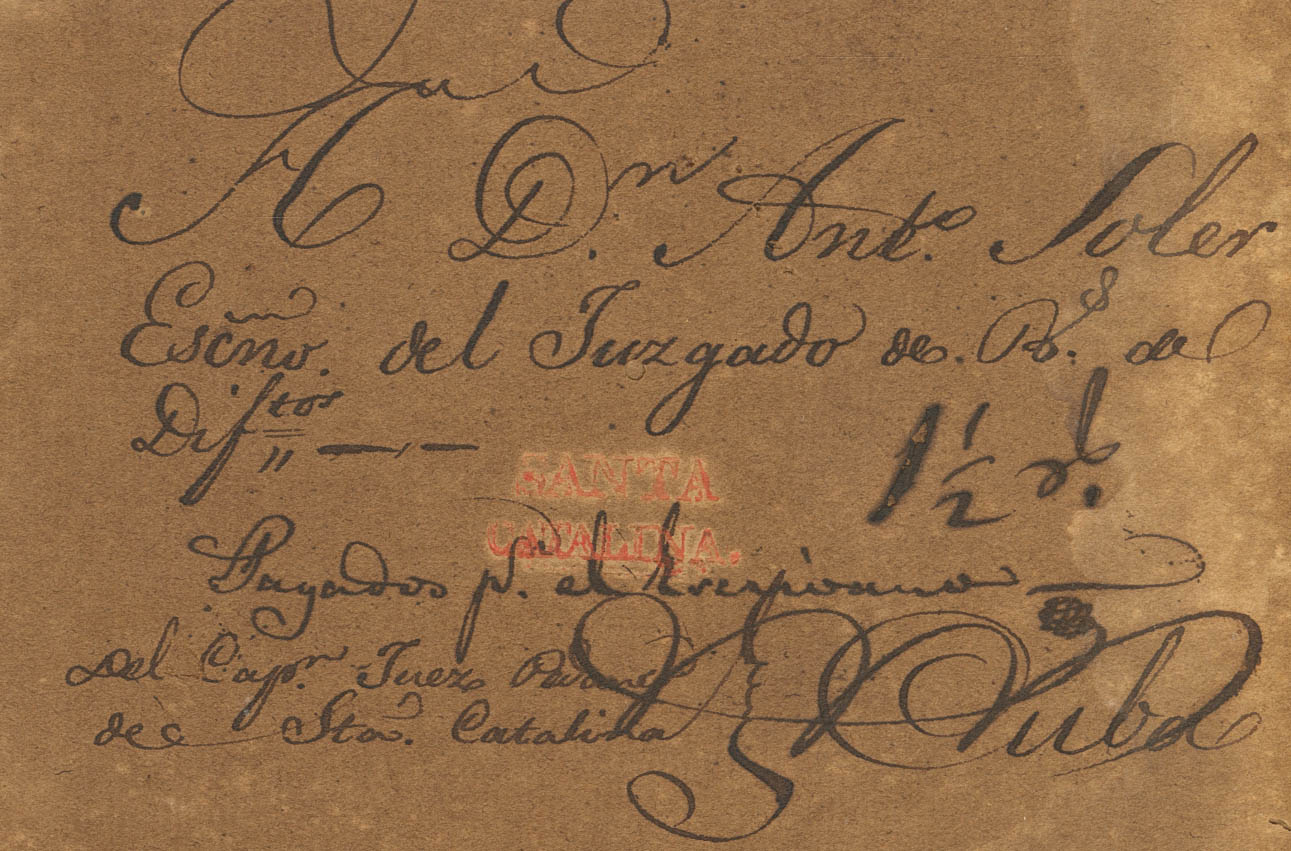 A Dn. Anto. Soler
Escno. del Juzgado de Bs. de
Diftos
1 1/2 rl.
SANTA
CATALINA.
Pagados pr. el Escrivano
Del Capn. Juez
de Sta. Catalina
Cuba